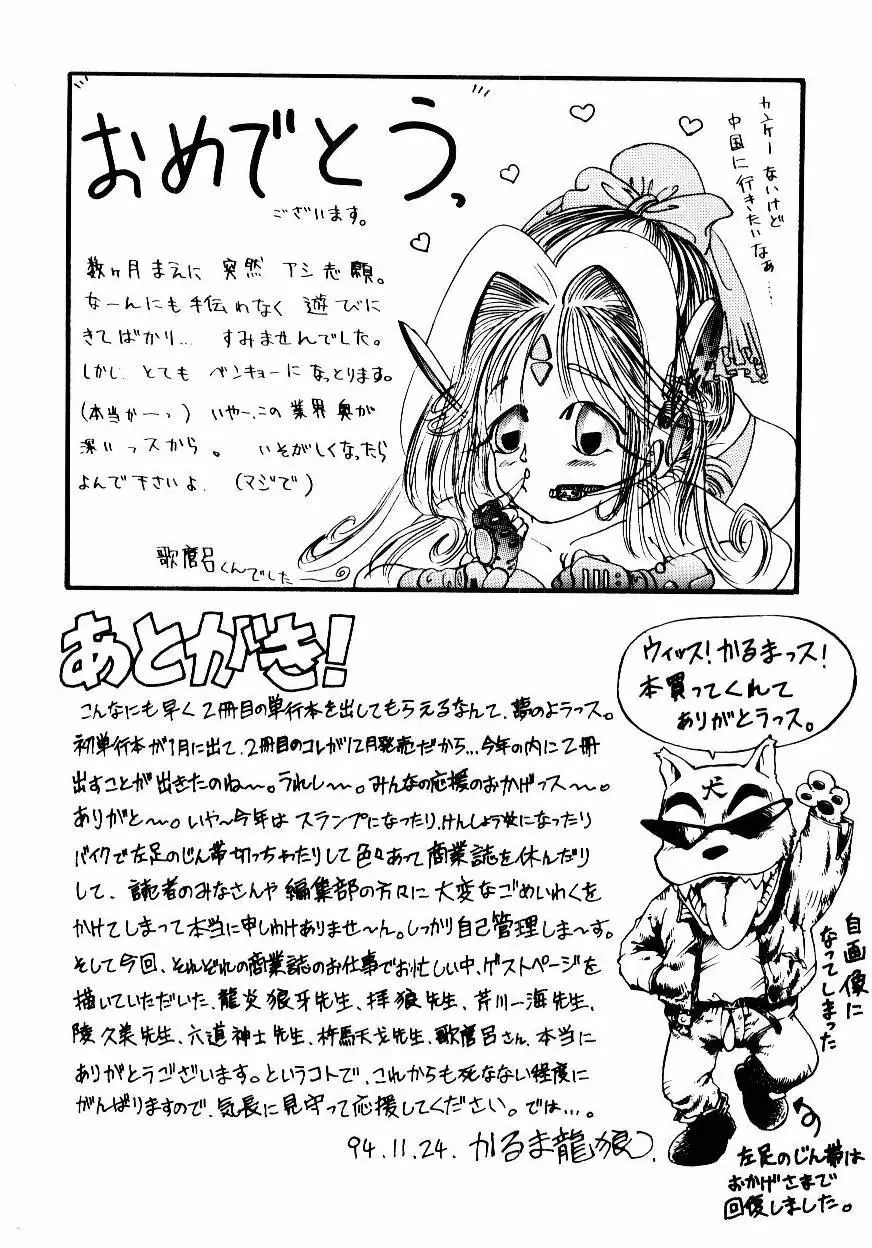 おめでとうっ
ございます。
カンケーないけど
中国に行きたいなぁ…
数ヶ月まえに 突然 アシ志願。
なーんにも手伝わなく 遊びに
きてばかり… すみませんでした。
しかし とても ベンキョーになっとります。
(本当かーっ) いやーこの業界奥が
深いっスから。 いそがしくなったら
よんで下さいよ. (マジで)
歌麿呂くんでした
あとがき!
こんなにも早く2冊目の単行本を出してもらえるなんて、夢のようっス。
初単行本が1月に出て、2冊目のコレが12月発売だから…今年の内に2冊
出すことが出きたのね〜。うれし〜。みんなの応援のおかげっス〜。
ありがと〜。いや〜今年は スランプになったり、けんしょう炎になったり
バイクで左足のじん帯切っちゃたりして色々あって商業誌を休んだり
して、読者のみなさんや編集部の方々に大変なごめいわくを
かけてしまって本当に申しわけありませ〜ん。しっかり自己管理しま〜す。
そして今回、それぞれの商業誌のお仕事でお忙しい中、ゲストページを
描いていただいた、龍炎狼牙先生、拝狼先生、芹川一海先生、
陵久美先生、六道神士先生、杵馬天戈先生、歌麿呂さん、本当に
ありがとうございます。というコトで、これからも死なない程度に
がんばりますので、気長に見守って応援してください。では…。
94.11.24. かるま龍狼.
ウィッス!かるまっス!
本買ってくれて
ありがとうっス。
犬
自画像に
なってしまった
左足のじん帯は
おかげさまで
回復しました。